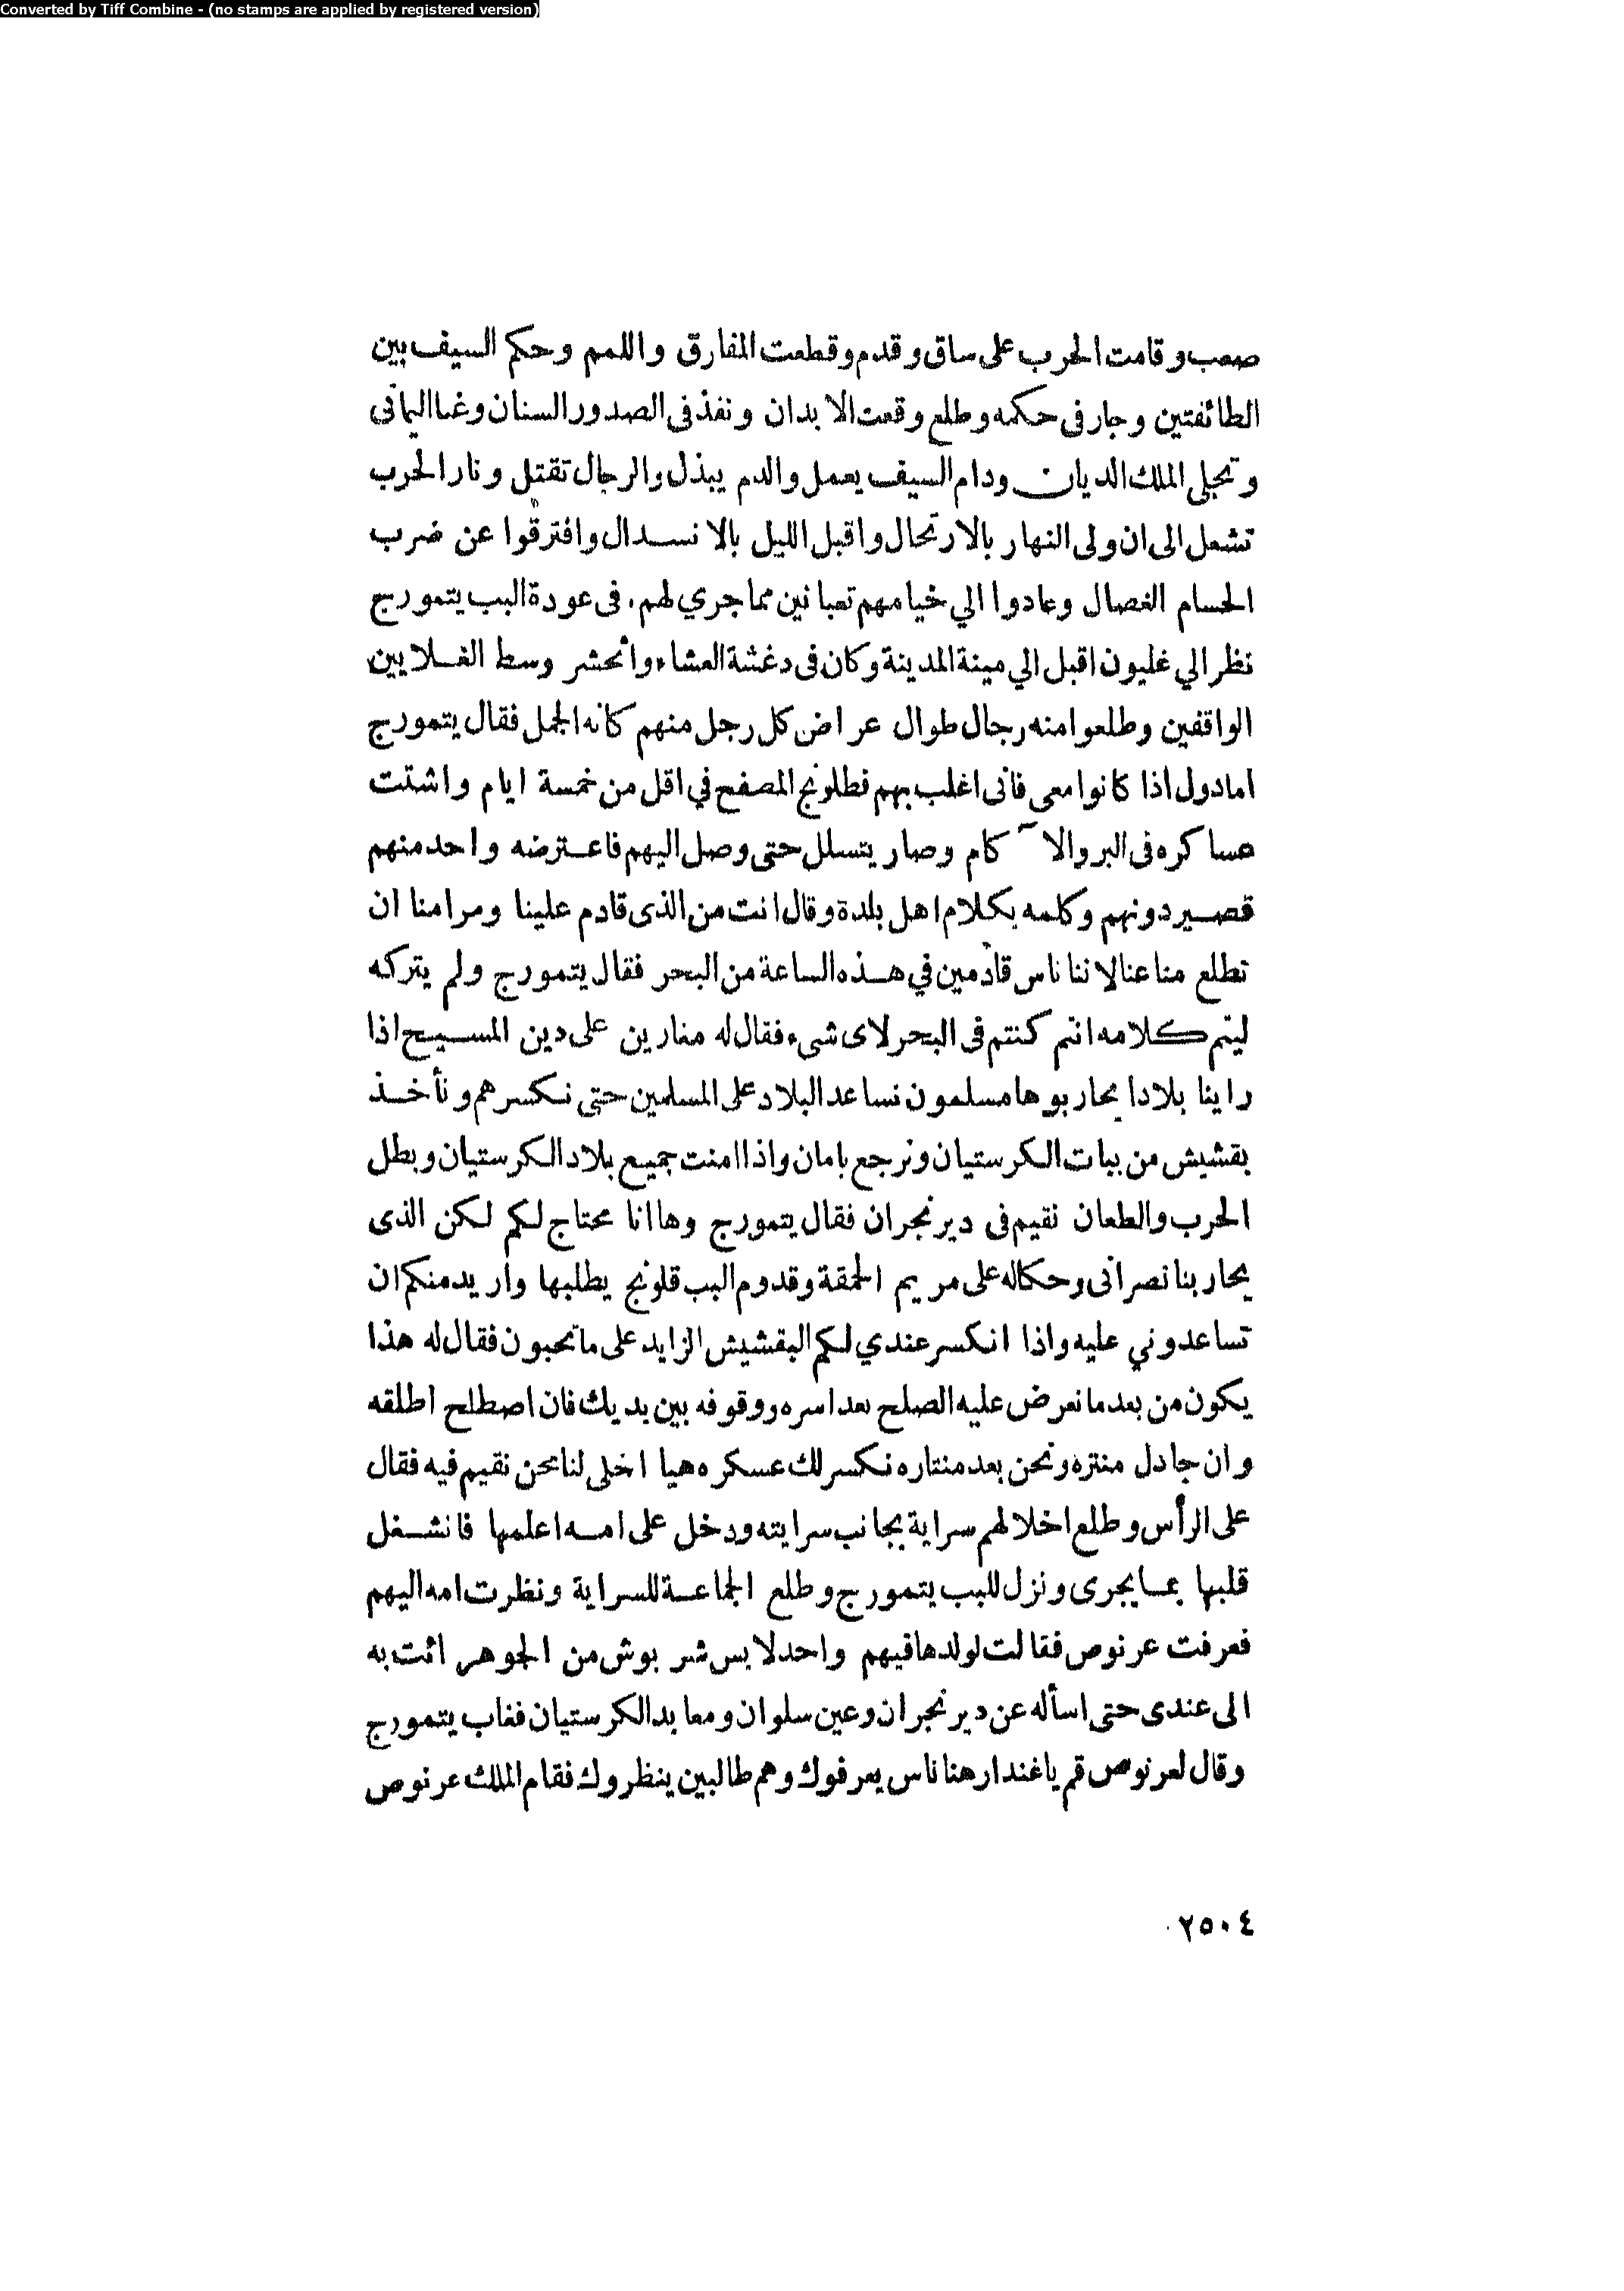 Converted by Tiff Combine - (no stamps are applied by registered version)
صعب وقامت الحرب على ساق وقدم وقطعت المفارق واللمم وحكم السيف بين
الطائفتين وجار فى حكمه وطلع وقعت الابدان ونفذ فى الصدور السنان وغما اليمانى
وتجلى الملك الديان ودام السيف يعمل والدم يبذل والرجال تقتل ونار الحرب
تشعل الى ان ولى النهار بالارتحال واقبل الليل بالانسدال وافترقوا عن ضرب
الحسام الفصال وعادوا الي خيامهم تعبانين مما جري لهم. فى عودة البب يتمورج
نظر الي غليون اقبل الي مينة المدينة وكان فى دغشة العشاء وانحشر وسط الغلايين
الواقفين وطلعوا منه رجال طوال عراض كل رجل منهم كانه الجمل فقال يتمورج
امادول اذا كانوا معى فانى اغلب بهم فطلونج المصفح في اقل من خمسة ايام واشتت
عساكره فى البر والآكام وصار يتسلل حتى وصل اليهم فاعترضه واحد منهم
قصير دونهم وكلمه بكلام اهل بلدة وقال انت من الذى قادم علينا ومرامنا ان
تطلع منا عنا لاننا ناس قادمين في هذه الساعة من البحر فقال يتمورج ولم يتركه
ليتم كلامه انتم كنتم فى البحر لاى شىء فقال له مغارين على دين المسيح اذا
راينا بلادا يحاربوها مسلمون نساعد البلاد على المسلمين حتى نكسرهم ونأخذ
بقشيش من ببات الكرستيان ونرجع بامان واذا امنت جميع بلاد الكرستيان وبطل
الحرب والطعان نقيم فى دير نجران فقال يتمورج وها انا محتاج لكم لكن الذى
يحاربنا نصرانى وحكاله على مريم الحمقة وقدوم البب قلونج يطلبها واريد منكم ان
تساعدوني عليه واذا انكسر عندي لكم البقشيش الزايد على ما تحبون فقال له هذا
يكون من بعد ما نعرض عليه الصلح بعد اسره ووقوفه بين يديك فان اصطلح اطلقه
وان جادل منتره ونحن بعد منتاره نكسر لك عسكره هيا اخلى لنا محن نقيم فيه فقال
على الرأس وطلع اخلا لهم سراية بجانب سرايته ودخل على امه اعلمها فانشغل
قلبها بما يجرى ونزل للبب يتمورج وطلع الجماعة للسراية ونظرت امه اليهم
فعرفت عرنوص فقالت لولدها فيهم واحد لابس شربوش من الجوهر ائت به
الى عندى حتى اسأله عن دير نجران وعين سلوان ومعابد الكرستيان فغاب يتمورج
وقال لعرنوص قم ياغندار هنا ناس يعرفوك وهم طالبين ينظروك فقام الملك عرنوص
٢٥٠٤